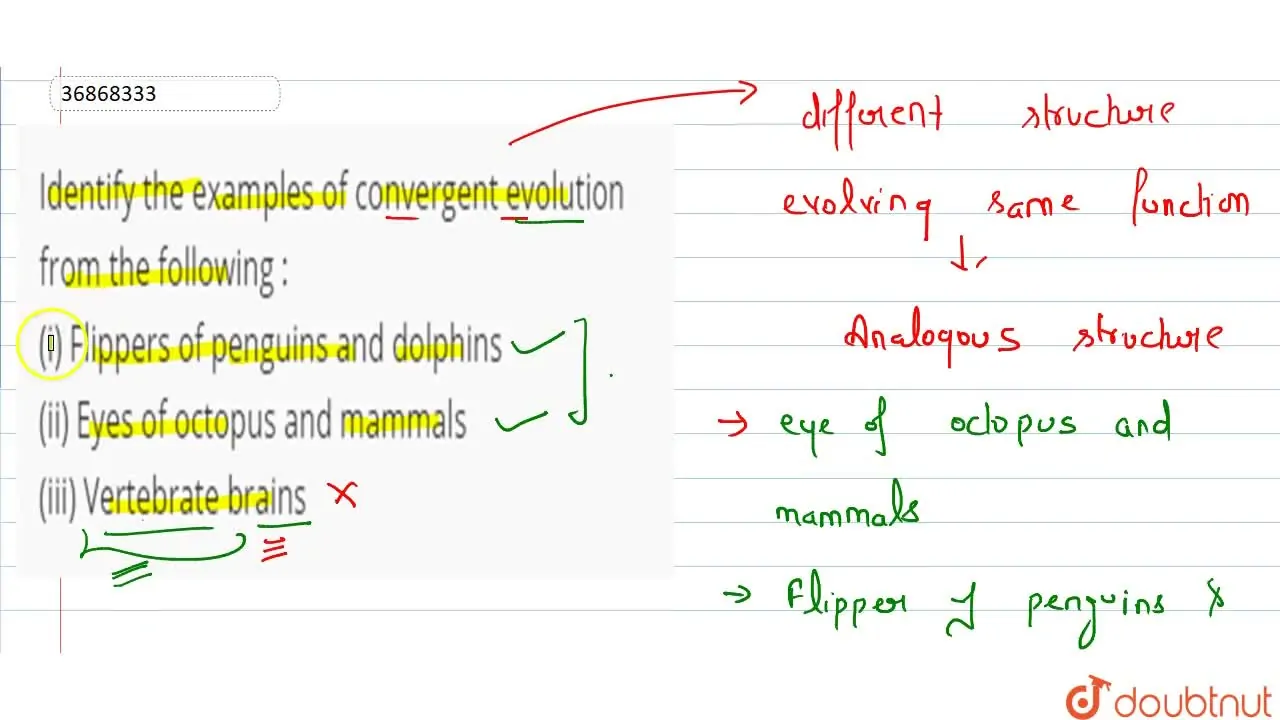 36868333
Identify the examples of convergent evolution
from the following :
(i) Flippers of penguins and dolphins
(ii) Eyes of octopus and mammals
(iii) Vertebrate brains
different structure
evolving same function
Analogous structure
→ eye of octopus and
mammals
→ Flipper of penguins &
doubtnut